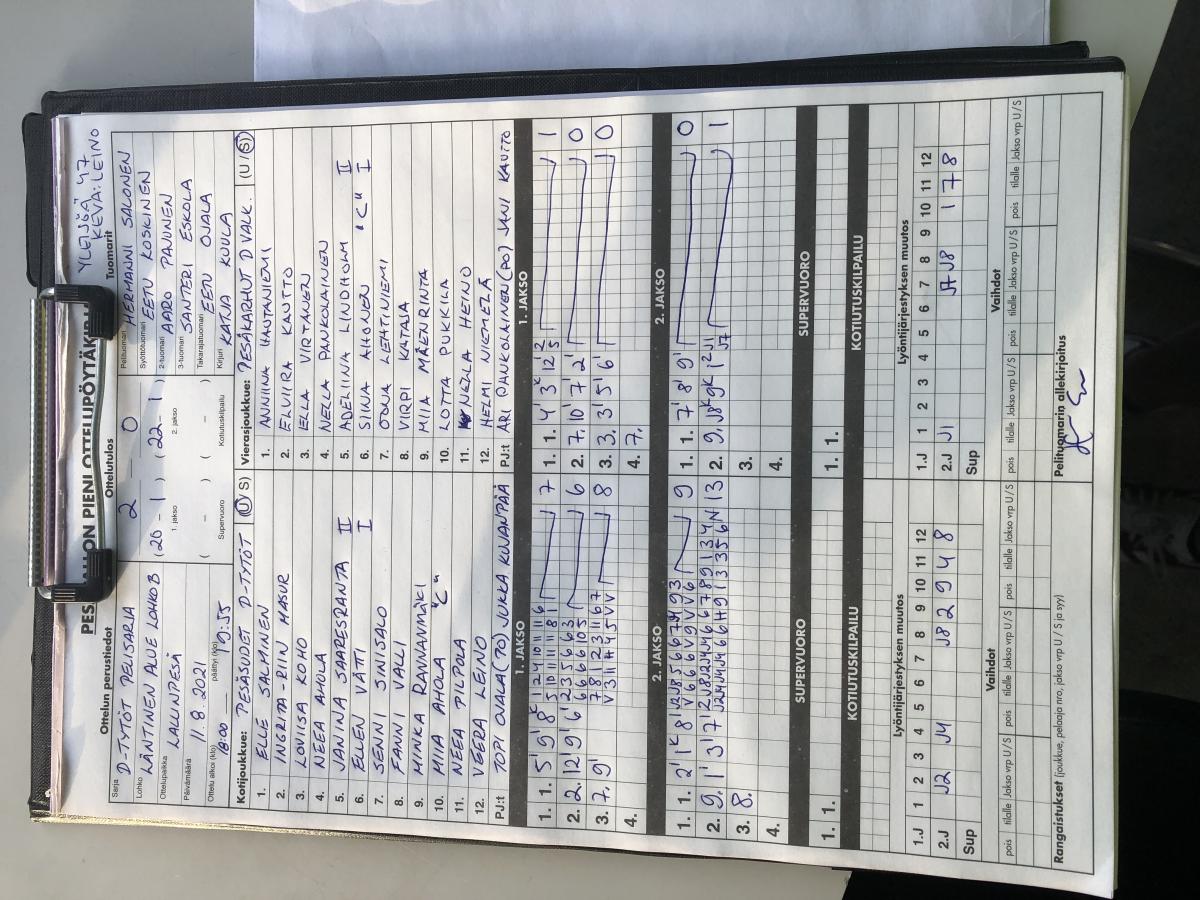 YLEISÖ 47
KEVA: LEINO
PIENI OTTELUPÖYTÄKIRJA
Ottelun perustiedot
Ottelutulos
Tuomarit
Sarja D-TYTÖT PELISARJA
Lohko LÄNTINEN ALUE LOHKO B
Ottelupaikka LALLINPESÄ
Päivämäärä 11.8.2021
Ottelu alkoi (klo) 18:00 päättyi (klo) 19:55
2 - 0
(26 - 1) (22 - 1)
1. jakso 2. jakso
( - ) ( - )
Supervuoro Kotiutuskilpailu
Pelituomari HERMANNI SALONEN
Syöttötuomari EETU KOSKINEN
2-tuomari AARO PAJUNEN
3-tuomari SANTERI ESKOLA
Takarajatuomari EETU OJALA
Kirjuri KATJA KUULA
Kotijoukkue: PESÄSUDET D-TYTÖT (U/S)
1. ELLE SALMINEN
2. INGRITA-RIIN MASUR
3. LOVIISA KOHO
4. NEEA AHOLA
5. JANINA SAARESRANTA II
6. ELLEN VÄTTI I
7. SENNI SINISALO
8. FANNI VALLI
9. MINKA RAVVANMÄKI
10. MIIA AHOLA "C"
11. NEEA PILPOLA
12. VEERA LEINO
PJ:t TOPI OJALA (TO) JUKKA KUJANPÄÄ
Vierasjoukkue: PESÄKARHUT D VALK. (U/S)
1. ANNIINA HAUTANIEMI
2. ELVIIRA KANTTO
3. LELLA VIRTANEN
4. NELLA PANKOLAINEN
5. ADELIINA LINDHOLM II
6. SIINA AHONEN "C" I
7. OTONA LEHTINIEMI
8. VIRPI KATAJA
9. MIIA MÄENRINTA
10. LOTTA PUKKILA
11. NEZLA HEINO
12. HELMI NIEMELÄ
PJ:t ARI PANKOLAINEN (PO) JANI KAUTTO
1. JAKSO
1. JAKSO
1. 1. 5' 9' 8' 7
2. 2. 12' 9' 6' 6
3. 7. 9' 8
4.
1. 1. 4' 3' 12' 1
2. 7. 10' 7' 2' 0
3. 3. 3' 5' 6' 0
4. 7.
2. JAKSO
2. JAKSO
1. 1. 2' 1' 8' 9
2. 9. 1' 3' 7' 13
3. 8.
4.
1. 1. 7' 8' 9' 0
2. 9. 1
3.
4.
SUPERVUORO
SUPERVUORO
1. 1.
1. 1.
KOTIUTUSKILPAILU
KOTIUTUSKILPAILU
Lyöntijärjestyksen muutos
Lyöntijärjestyksen muutos
1.J 1 2 3 4 5 6 7 8 9 10 11 12
2.J J2 J4 J8 2 9 4 8
Sup
1.J 1 2 3 4 5 6 7 8 9 10 11 12
2.J J1 J7 J8 1 7 8
Sup
Vaihdot
Vaihdot
pois tilalle Jakso vrp U/S pois tilalle Jakso vrp U/S pois tilalle Jakso vrp U/S
pois tilalle Jakso vrp U/S pois tilalle Jakso vrp U/S pois tilalle Jakso vrp U/S
Rangaistukset (joukkue, pelaaja nro, jakso vrp U/S ja syy)
Pelituomarin allekirjoitus